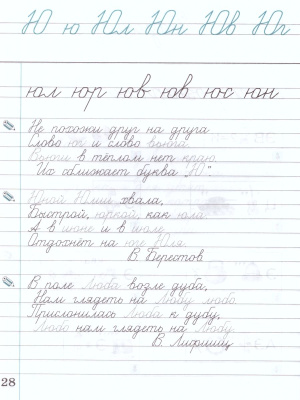 Ю ю Юл Юн Юв Юг
юл юр юв юв юс юн
Не похожи друг на друга
Слово юг и слово вьюга.
Вьюги в тёплом нет краю.
Их сближает буква "Ю".
Юной Юлии хвала,
Быстрой, юркой, как юла.
А в июне и в июле
Отдохнёт на юге Юля.
В. Берестов
В поле Люба возле дуба,
Нам глядеть на Любу любо.
Прислонилась Люба к дубу,
Любо нам глядеть на Любу.
В. Лифшиц
28